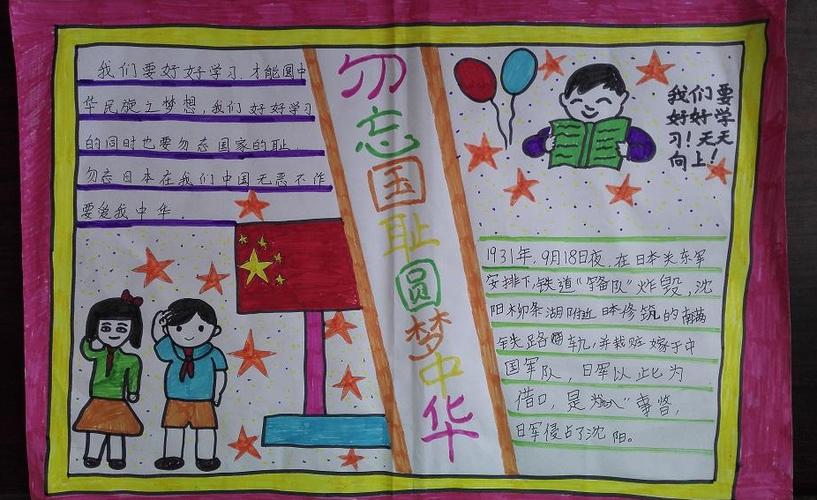 我们要好好学习，才能圆中
华民族之梦想，我们好好学习
的同时也要勿忘国家的耻
勿忘日本在我们中国无恶不作
要爱我中华。
勿忘国耻圆梦中华
我们要
好好学
习！天天
向上！
1931年，9月18日夜，在日本关东军
安排下，铁道“队”炸毁，沈
阳柳条湖附近日本修筑的南满
铁路轨，并栽赃嫁于中
国军队，日军以此为
借口，是事
日军侵占了沈阳。